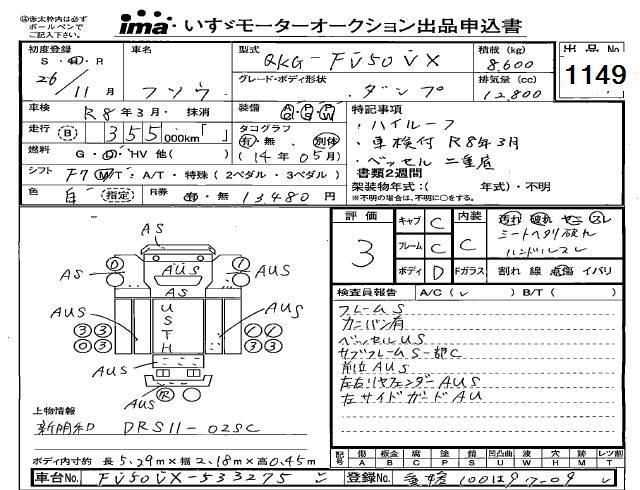 ㊟赤太枠内は必ず
ボールペンで
ご記入下さい。
ima いすゞモーターオークション出品申込書
初度登録 車名 型式 QKG-FV50VX 積載 (kg) 8,600 出品No
S・H・R 26/11月 フソウ グレード・ボディ形状 ダンプ 排気量 (cc) 12,800 1149
車検 R8年3月・抹消 装備 特記事項
走行 B 355,000km「 」 タコグラフ 有・無 別体 ・ハイルーフ
燃料 G・D・HV 他( ) (14年05月) ・車検付 R8年3月
・ベッセル二重底
シフト F7 MT・A/T・特殊(2ペダル・3ペダル) 書類2週間
色 白 指定 R券 有・無 13480円 架装物年式:( 年式)・不明
※不明の場合は、不明に○をする。
評価 3 キャブ C 内装 C 汚れ 破れ ヤニ スレ
フレーム C シートヘタリ破れ
ハンドルスレ
ボディ D Fガラス 割れ 線 点傷 イバリ
検査員報告 A/C(レ) B/T( )
フレームS
カニバン有
ベッセルUS
サブフレームS一部C
前立AUS
左右リヤフェンダーAUS
左サイドガードAU
AS
AS D 1 AUS
AUS
AS
AUS U S T H AUS
3 3 1 1
0 3 3 3
AUS
AUS R
上物情報
新明和 DRS11-02SC
ボディ内寸約 長5.29m×幅2.18m×高0.45m
記号 傷 板金 腐 塗 錆 凹凸曲 穴 跡 レツ割
A B C P S U W H M T
車台No. FV50VX-533275 登録No. 愛媛 100は97-09